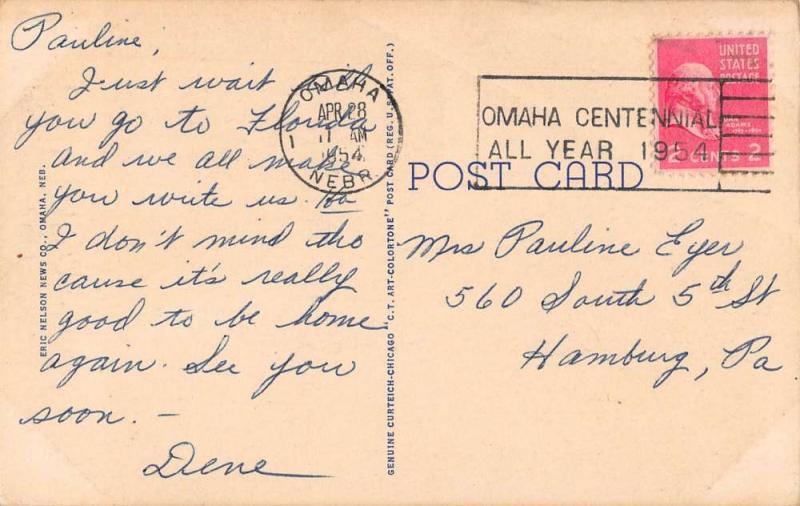 Pauline,
Just wait till
you go to Florida
and we all make
you write us. Ha
I don't mind tho
cause it's really
good to be home
again. See you
soon. —
Dene
ERIC NELSON NEWS CO., OMAHA, NEB.
GENUINE CURTEICH-CHICAGO "C.T. ART-COLORTONE" POST CARD (REG. U.S. PAT. OFF.)
OMAHA
APR 28
11 AM
1954
NEBR.
1
OMAHA CENTENNIAL
ALL YEAR 1954
UNITED
STATES
POSTAGE
ADAMS
CENTS 2
POST CARD
Mrs Pauline Eyer
560 South 5th St
Hamburg, Pa